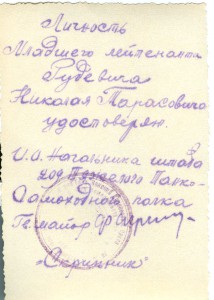 Личность
Младшего лейтенанта
Рудевича
Николая Тарасовича
удостоверяю.
И.О. Начальника штаба
Тяжелого Танко-
Самоходного полка
Гв. майор
"Скрипник"